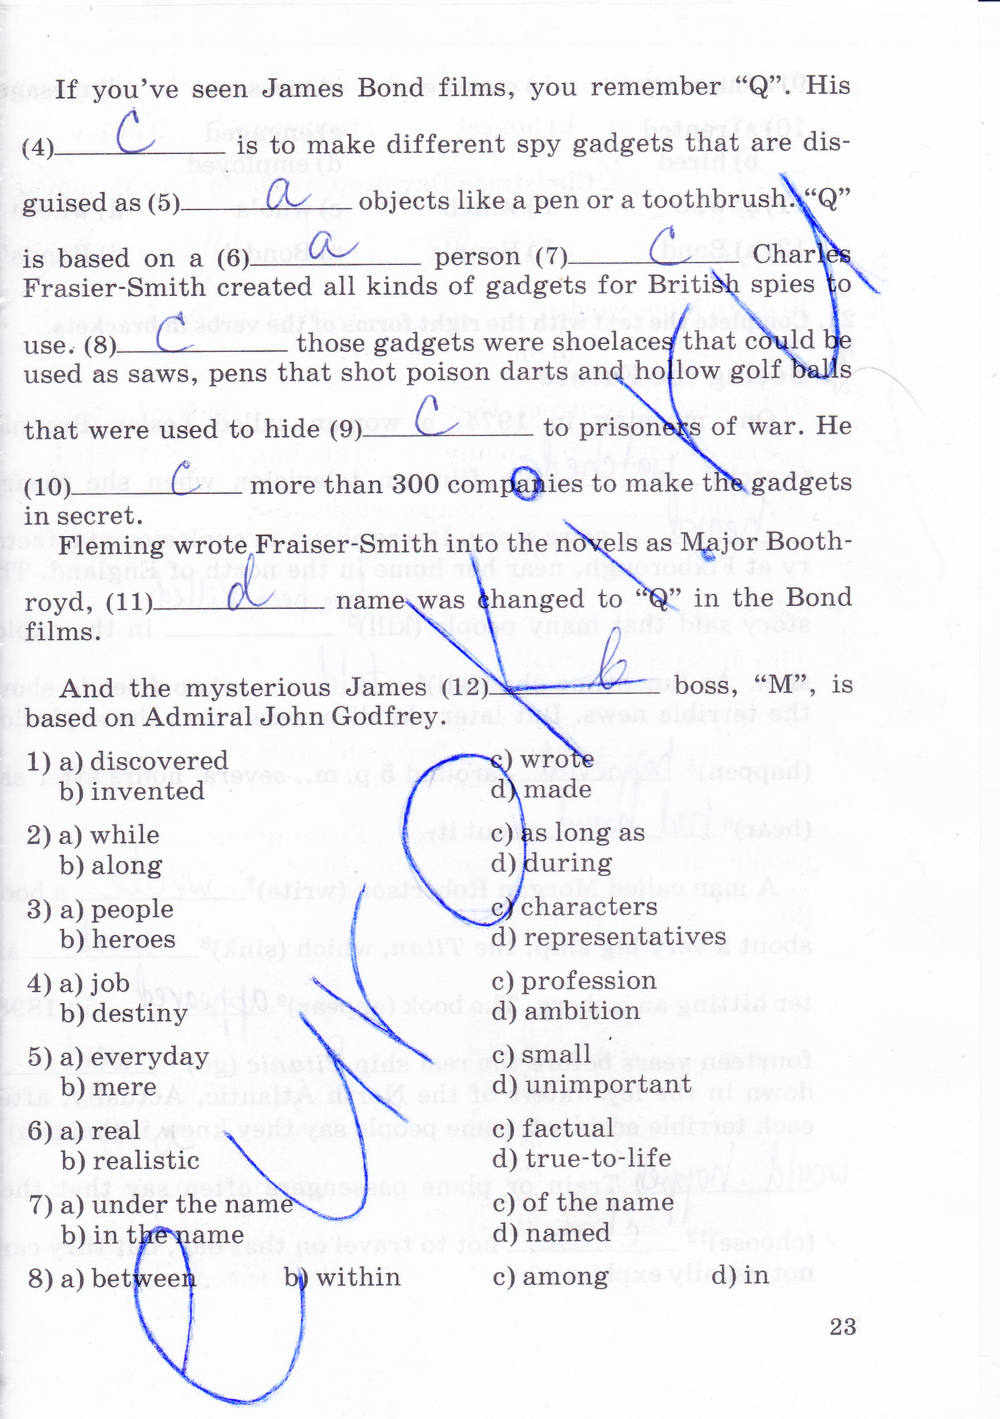 If you've seen James Bond films, you remember "Q". His
(4) c is to make different spy gadgets that are dis-
guised as (5) a objects like a pen or a toothbrush. "Q"
is based on a (6) a person (7) c Charles
Frasier-Smith created all kinds of gadgets for British spies to
use. (8) c those gadgets were shoelaces that could be
used as saws, pens that shot poison darts and hollow golf balls
that were used to hide (9) c to prisoners of war. He
(10) c more than 300 companies to make the gadgets
in secret.
Fleming wrote Fraiser-Smith into the novels as Major Booth-
royd, (11) d name was changed to "Q" in the Bond
films.
And the mysterious James (12) b boss, "M", is
based on Admiral John Godfrey.
1) a) discovered c) wrote
b) invented d) made
2) a) while c) as long as
b) along d) during
3) a) people c) characters
b) heroes d) representatives
4) a) job c) profession
b) destiny d) ambition
5) a) everyday c) small
b) mere d) unimportant
6) a) real c) factual
b) realistic d) true-to-life
7) a) under the name c) of the name
b) in the name d) named
8) a) between b) within c) among d) in
23